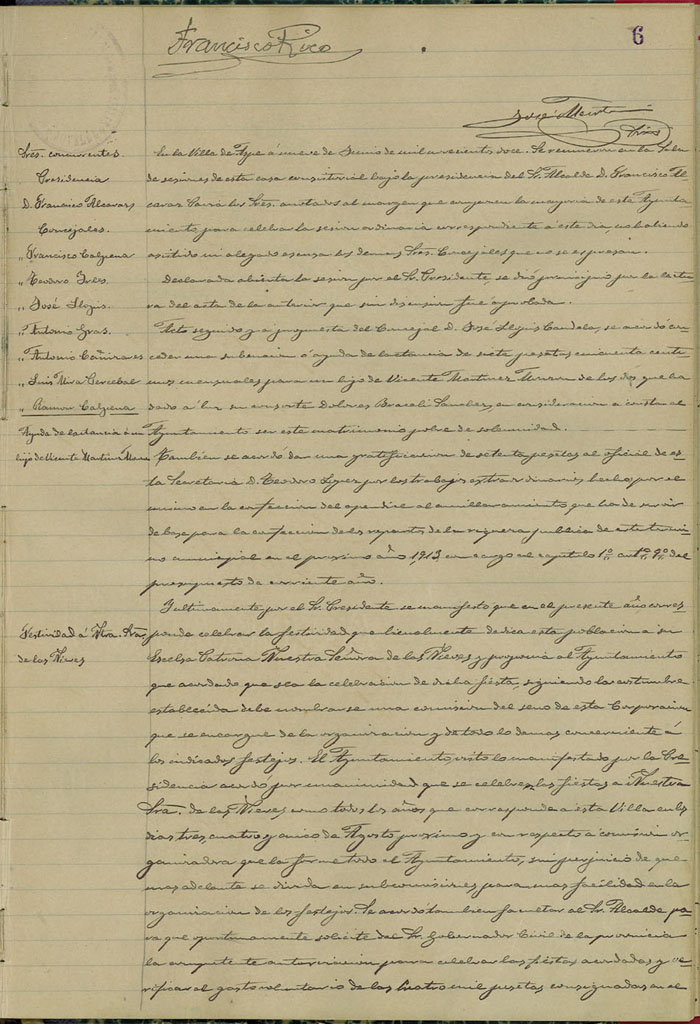 Francisco Rico
6
Sres. concurrentes
Presidencia
D. Francisco Alcaraz
Concejales.
" Francisco Calpena
" Teodoro
" José Llopis
" Antonio Gras.
" Antonio Cañizares
" Luis Mira Cerebal
" Ramon Calpena
Ayuda de lactancia á un
hijo de Vicente Martinez
Festividad á Ntra. Sra.
de las Nieves
En la Villa de Aspe á nueve de Junio de mil novecientos doce. Se reunieron en la Sala
de sesiones de esta casa consistorial bajo la presidencia del Sr. Alcalde D. Francisco Al-
caraz los Sres. anotados al margen que componen la mayoria de este Ayunta
miento para celebrar la sesion ordinaria correspondiente á este dia, no habiendo
asistido ni alegado escusa los demas Sres. Concejales que no se expresan.
Declarada abierta la sesion por el Sr. Presidente, se dió principio por la lectu-
ra del acta de la anterior que sin discusion fué aprobada.
Acto seguido y a propuesta del Concejal D. José Llopis Candela, se acordó con-
ceder una subvencion ó ayuda de lactancia de siete pesetas cincuenta centi-
mos mensuales para un hijo de Vicente Martinez de los dos que ha
dado á luz su consorte Dolores Sanchez, en consideracion a constar al
Ayuntamiento ser este matrimonio pobre de solemnidad.
Tambien se acordó dar una gratificacion de setenta pesetas al oficial de es-
ta Secretaria D. Teodoro Lopez por los trabajos extraordinarios hechos por el
mismo en la confeccion del apendice al amillaramiento que ha de servir
de base para la confeccion de los repartos de la riqueza publica de este termi-
no municipal en el proximo año 1913, con cargo al capitulo 1º artº 9º del
presupuesto de corriente año.
Y ultimamente por el Sr. Presidente se manifestó que en el presente año corres-
ponde celebrar la festividad que bienalmente dedica esta poblacion á su
Excelsa Patrona Nuestra Señora de las Nieves y proponia al Ayuntamiento
que acordado que sea la celebracion de dicha fiesta, siguiendo la costumbre
establecida debe nombrarse una comision del seno de esta Corporacion
que se encargue de la organizacion y de todo lo demas concerniente á
los indicados festejos. El Ayuntamiento visto lo manifestado por la Pre-
sidencia acordó por unanimidad que se celebren las fiestas á Nuestra
Sra. de las Nieves como todos los años que corresponde a esta Villa en los
dias tres, cuatro y cinco de Agosto proximo y con respecto á comision or-
ganizadora que la forme todo el Ayuntamiento, sin perjuicio de que
mas adelante se divida en subcomisiones para mas facilidad en la
organizacion de los festejos. Se acordó tambien facultar al Sr. Alcalde pa-
ra que oportunamente solicite del Sr. Gobernador Civil de la provincia
la competente autorizacion para celebrar las fiestas acordadas y ve-
rificar el gasto voluntario de las cuatro mil pesetas consignadas en el